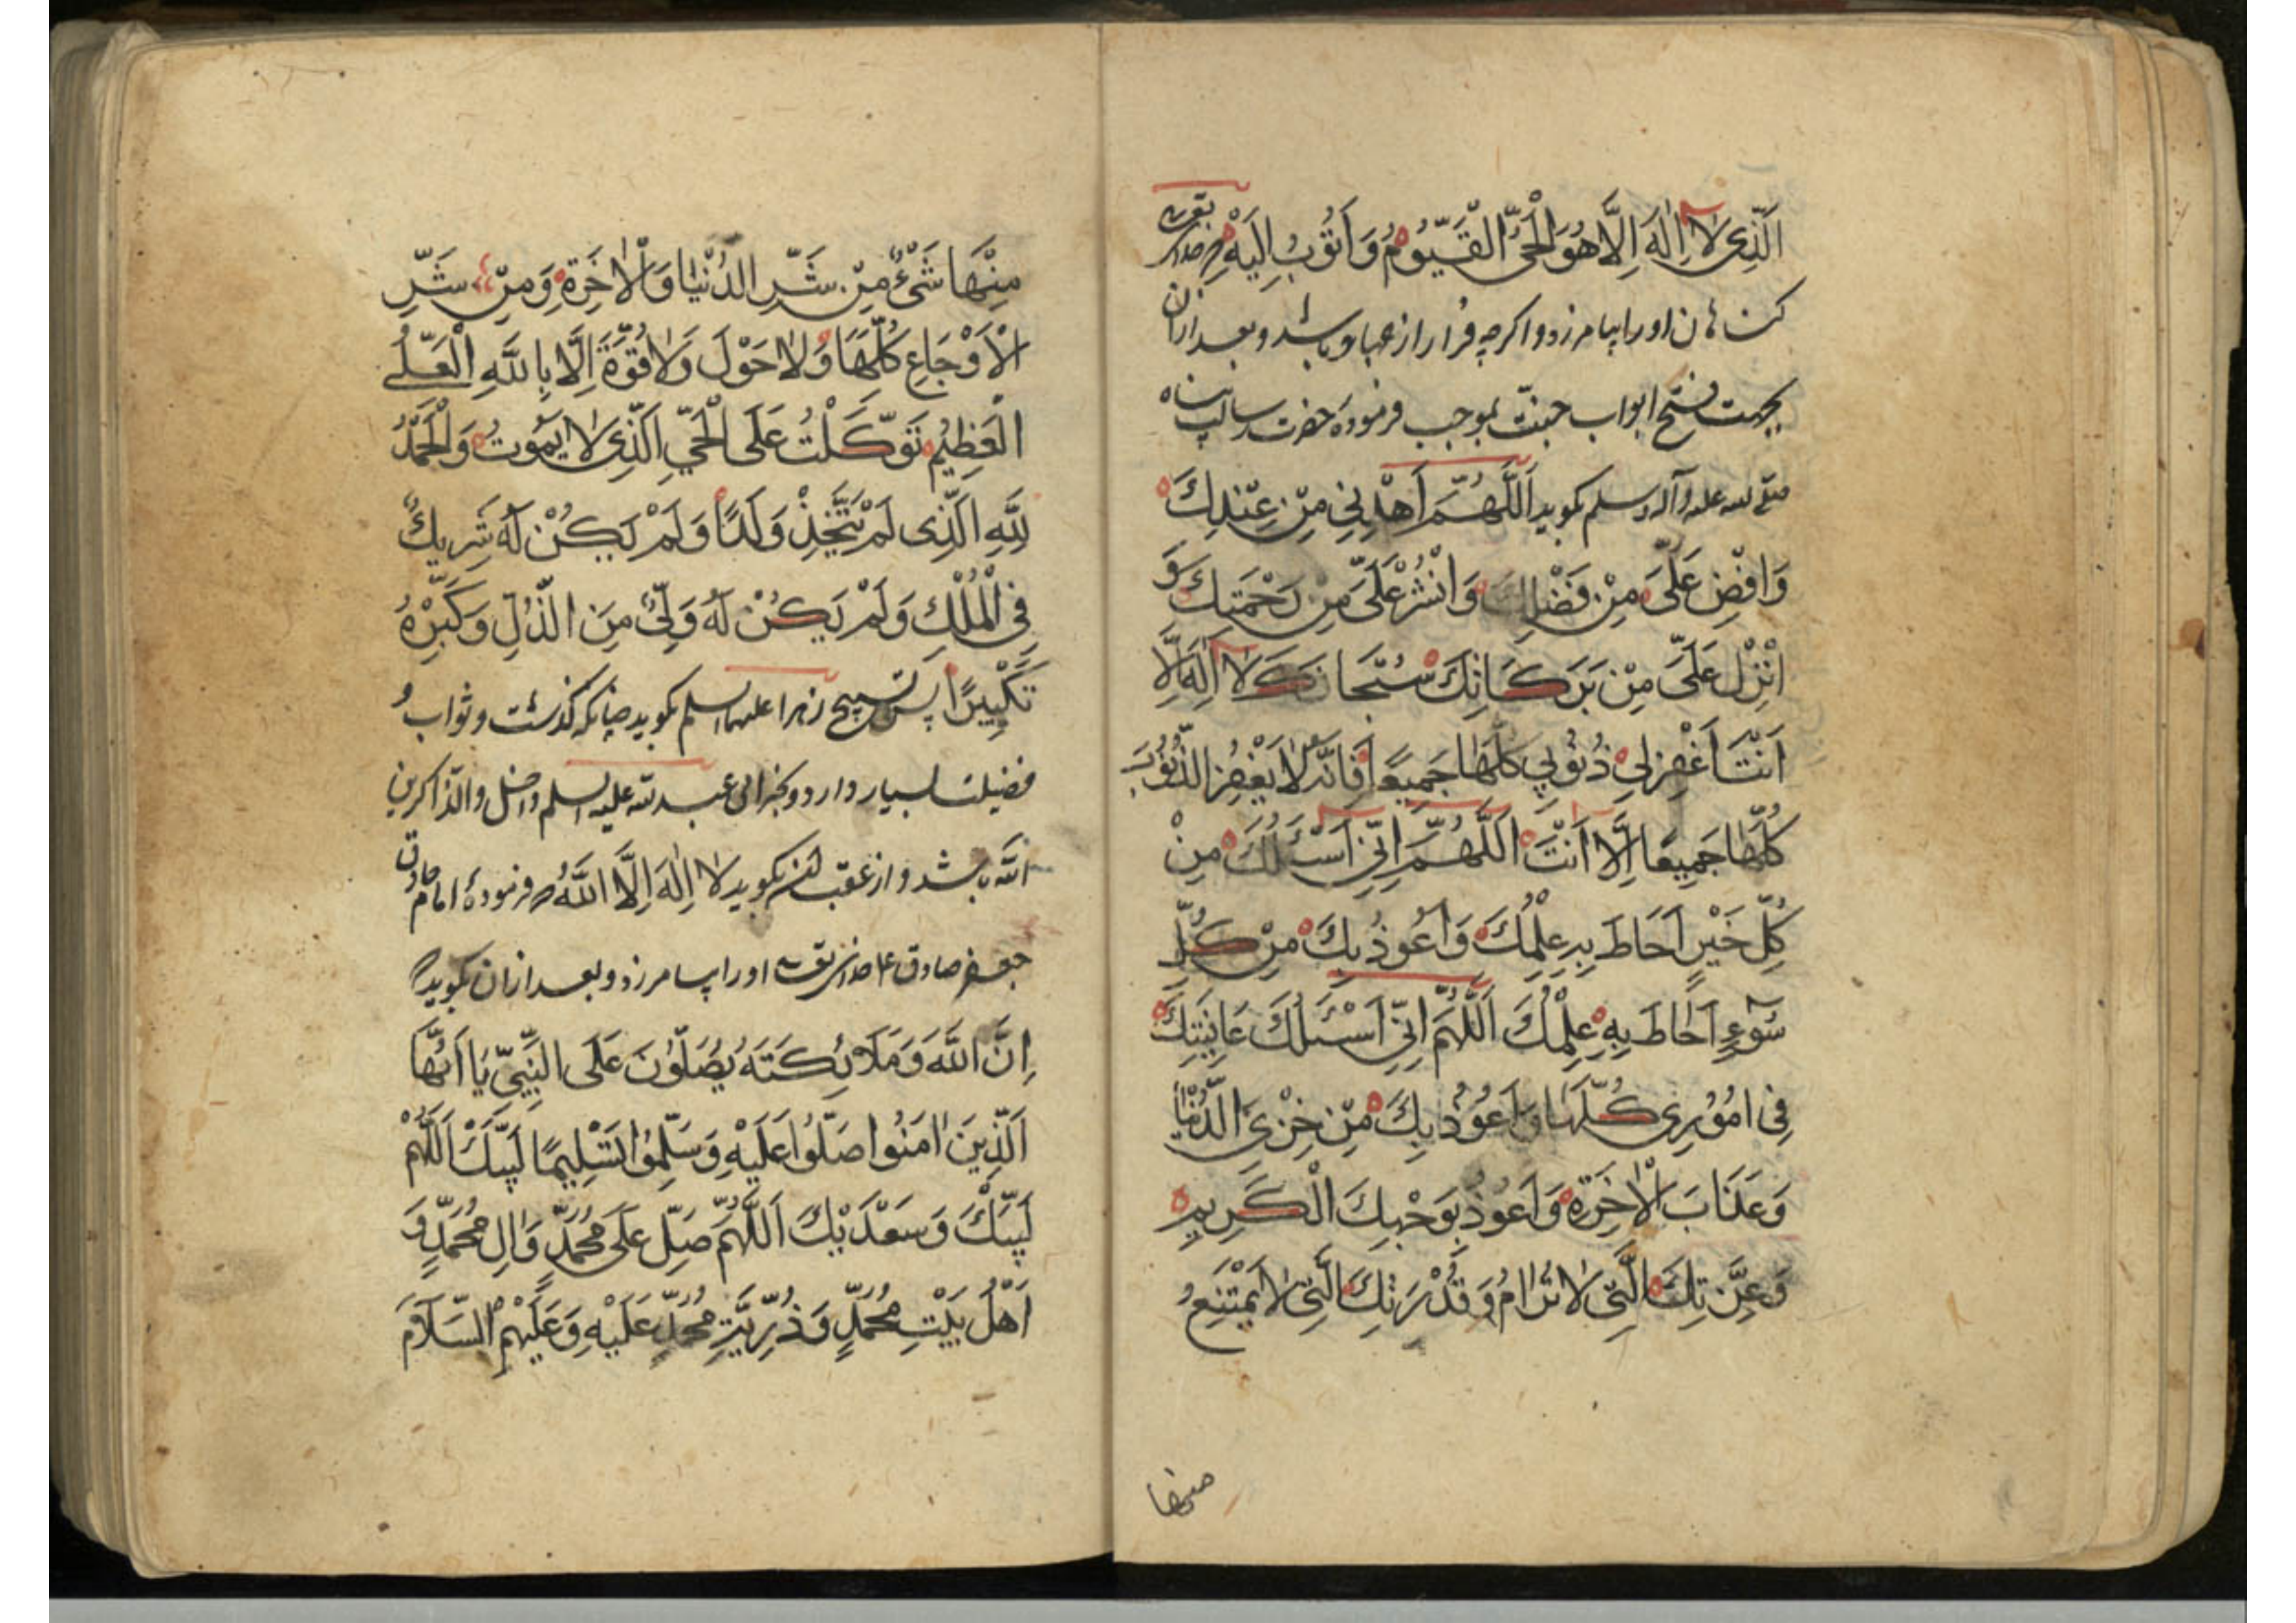 اَلَّذِی لَا اِلٰهَ اِلَّا هُوَ الْحَیُّ الْقَیُّومُ وَ اَتُوبُ اِلَیْهِ
کناهان او را بیامرزد و اکرچه فرار از جهاد باشد و بعد ازان
بجهت فتح ابواب جنت بموجب فرمودهٔ حضرت رسالت پناه
صلی الله علیه و آله و سلم بکوید اَللّٰهُمَّ اَهْدِنِی مِنْ عِنْدِكَ
وَ افِضْ عَلَیَّ مِنْ فَضْلِكَ وَ انْشُرْ عَلَیَّ مِنْ رَحْمَتِكَ وَ
انْزِلْ عَلَیَّ مِنْ بَرَكَاتِكَ سُبْحَانَكَ لَا اِلٰهَ اِلَّا
اَنْتَ اَغْفِرْ لِی ذُنُوبِی كُلَّهَا جَمِیعًا فَاِنَّهُ لَا یَغْفِرُ الذُّنُوبَ
كُلَّهَا جَمِیعًا اِلَّا اَنْتَ اَللّٰهُمَّ اِنِّی اَسْئَلُكَ مِنْ
كُلِّ خَیْرٍ اَحَاطَ بِهِ عِلْمُكَ وَ اَعُوذُ بِكَ مِنْ كُلِّ
سُوۤءٍ اَحَاطَ بِهِ عِلْمُكَ اَللّٰهُمَّ اِنِّی اَسْئَلُكَ عَافِیَتَكَ
فِی امُوُرِی كُلِّهَا وَ اَعُوذُ بِكَ مِنْ خِزْیِ الدُّنْیَا
وَ عَذَابَ الْاٰخِرَةِ وَ اَعُوذُ بِوَجْهِكَ الْكَرِیمِ
وَ عِزَّتِكَ الَّتِی لَا تُرَامُ وَ قُدْرَتِكَ الَّتِی لَا یَمْتَنِعُ
منها
مِنْهَا شَیْءٌ مِنْ شَرِّ الدُّنْیَا وَ الْاٰخِرَةِ وَ مِنْ شَرِّ
الْاَوْجَاعِ كُلِّهَا وَ لَا حَوْلَ وَ لَا قُوَّةَ اِلَّا بِاللّٰهِ الْعَلِیِّ
الْعَظِیْمِ تَوَكَّلْتُ عَلَی الْحَیِّ الَّذِی لَا یَمُوتُ وَ الْحَمْدُ
لِلّٰهِ الَّذِی لَمْ یَتَّخِذْ وَلَدًا وَ لَمْ یَكُنْ لَهُ شَرِیكٌ
فِی الْمُلْكِ وَ لَمْ یَكُنْ لَهُ وَلِیٌّ مِنَ الذُّلِّ وَ كَبِّرْهُ
تَكْبِیرًا پس تسبیح زهرا علیها السلم بکوید چنانکه کذشت و ثواب و
فضیلت بسیار دارد ابی عبد الله علیه السلم داخل والذاکرین
الله باشد و از عقب بکوید لَا اِلٰهَ اِلَّا اللّٰهُ فرمودهٔ امام
جعفر صادق او را بیامرزد و بعد ازان بکوید
اِنَّ اللّٰهَ وَ مَلَائِكَتَهُ یُصَلُّوُنَ عَلَی النَّبِیِّ یَا اَیُّهَا
اَلَّذِینَ اٰمَنُوا صَلُّوا عَلَیْهِ وَ سَلِّمُوا تَسْلِیمًا لَبَّیْكَ اَللّٰهُمَّ
لَبَّیْكَ وَ سَعْدَیْكَ اَللّٰهُمَّ صَلِّ عَلَی مُحَمَّدٍ وَ اٰلِ مُحَمَّدٍ وَ
اَهْلِ بَیْتِ مُحَمَّدٍ وَ ذُرِّیَّةِ مُحَمَّدٍ عَلَیْهِ وَ عَلَیْهِمُ السَّلَامَ